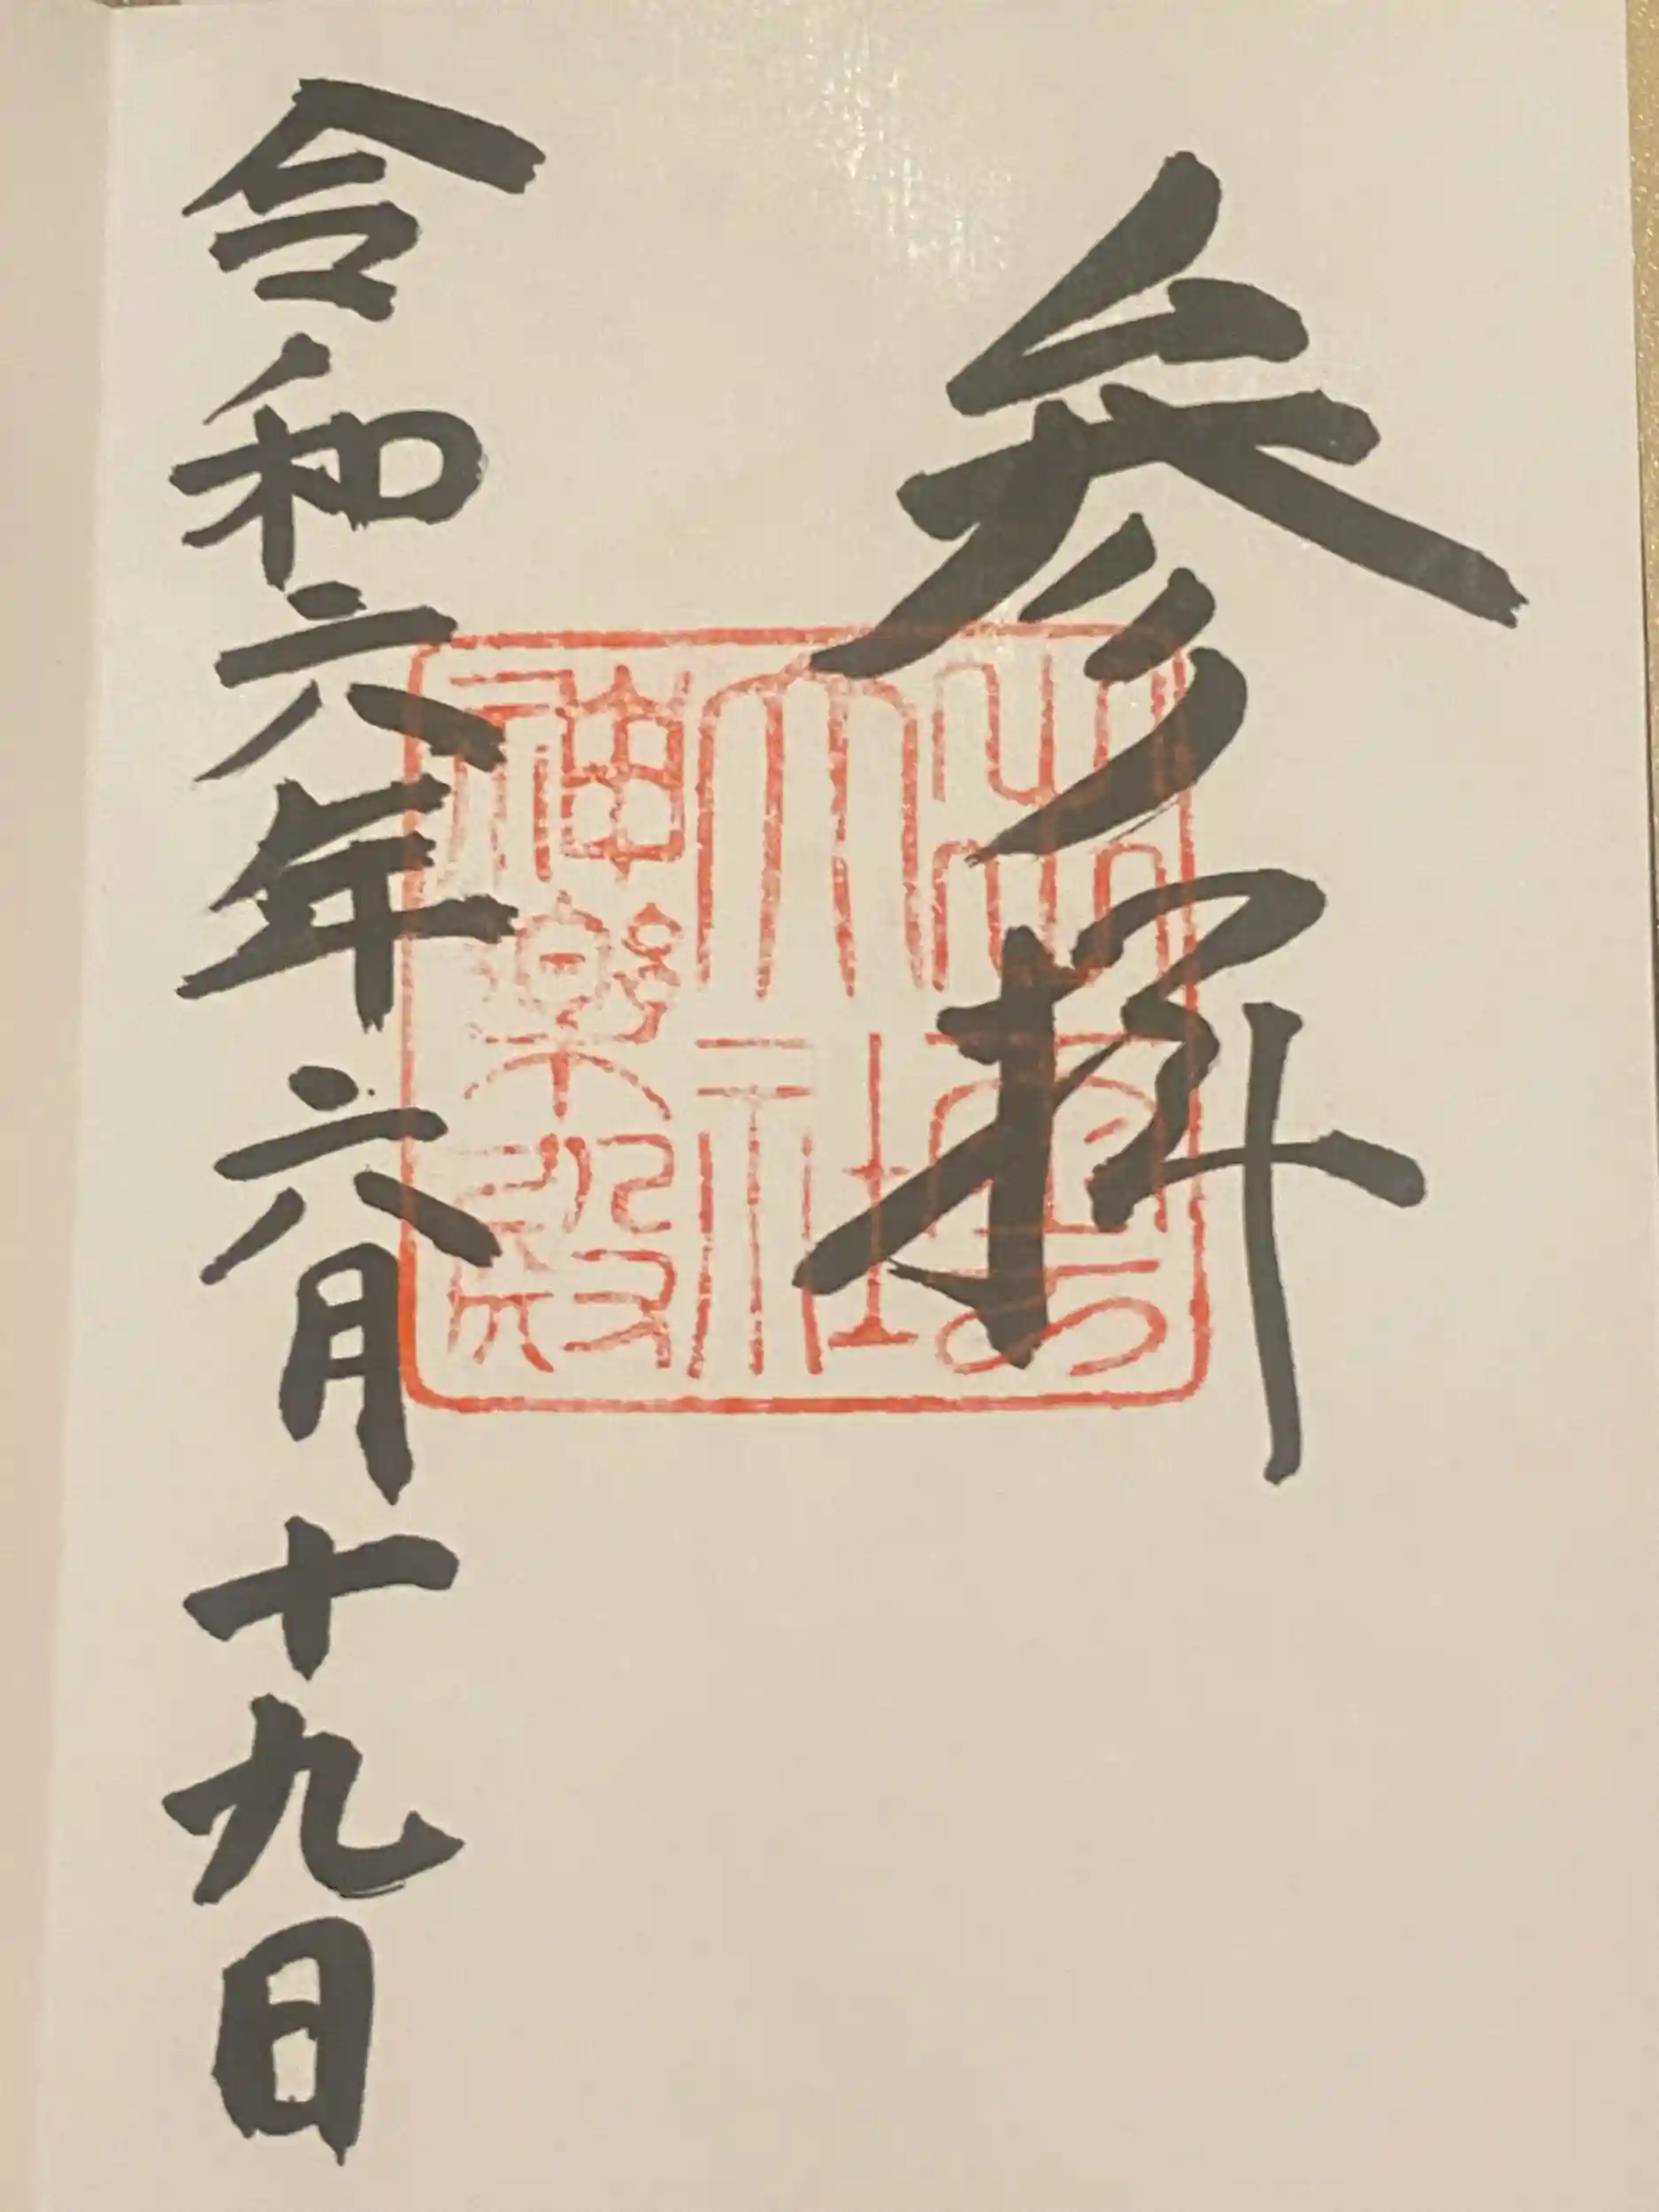 参拝
出雲大社神楽殿
令和六年六月十九日